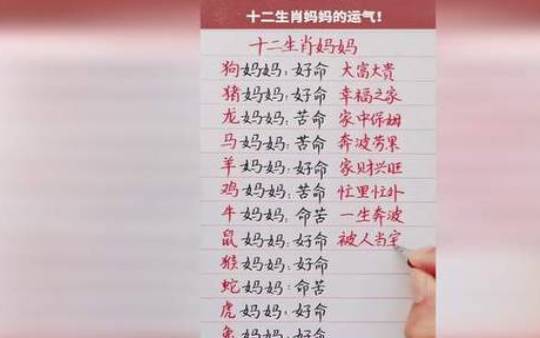 十二生肖妈妈的运气!
十二生肖妈妈
狗妈妈:好命 大富大贵
猪妈妈:好命 幸福之家
龙妈妈:苦命 家中保姆
马妈妈:苦命 奔波劳累
羊妈妈:好命 家财兴旺
鸡妈妈:苦命 忙里忙外
牛妈妈:命苦 一生奔波
鼠妈妈:好命 被人当宝
猴妈妈:好命
蛇妈妈:命苦
虎妈妈:好命
兔妈妈:好命